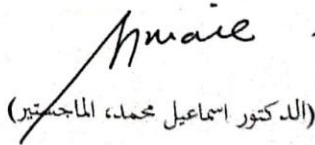 (الدكتور اسماعيل محمد، الماجستير)